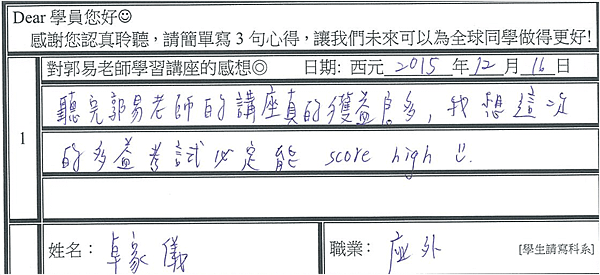 Dear 學員您好☺
感謝您認真聆聽，請簡單寫 3 句心得，讓我們未來可以為全球同學做得更好!
對郭易老師學習講座的感想◎ 日期: 西元 2015 年 12 月 16 日
1
聽完郭易老師的講座真的獲益良多，我想這次
的多益考試必定能 score high ☺.
姓名： 卓家儀 職業： 應外 [學生請寫科系]